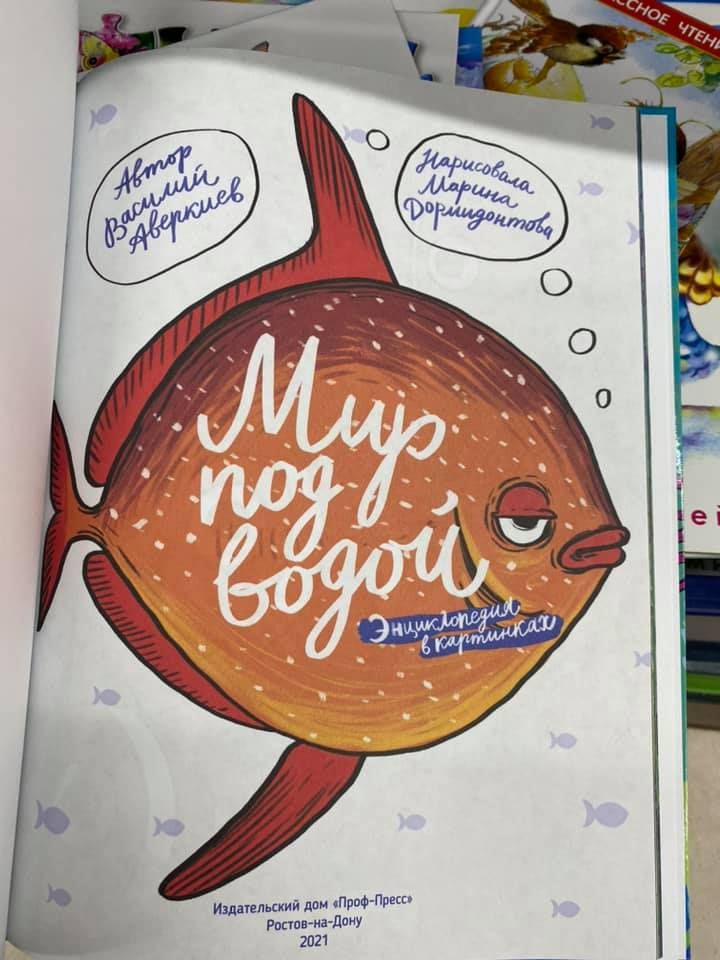 ССНОЕ ЧТЕН
Автор
Василий
Аверкиев
Нарисовала
Марина
Дормидонтова
Мир
под
водой
Энциклопедия
в картинках
Издательский дом «Проф-Пресс»
Ростов-на-Дону
2021